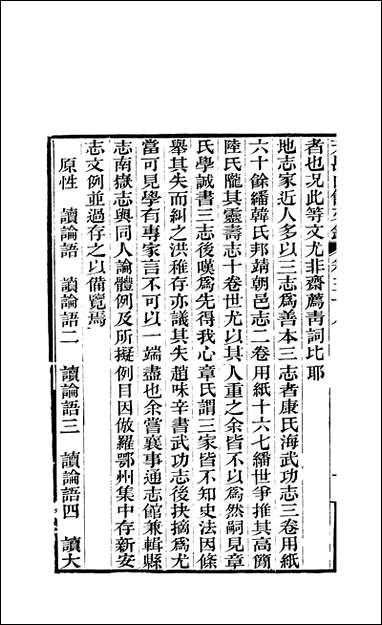 者也況此等文尤非齋薦青詞比耶
地志家近人多以三志爲善本三志者康氏海武功志三卷用紙
六十餘繙韓氏邦靖朝邑志二卷用紙十六七繙世爭推其高簡
陸氏隴其靈壽志十卷世尤以其人重之余皆不以爲然嗣見章
氏學誠書三志後嘆爲先得我心章氏謂三家皆不知史法因條
舉其失而糾之洪稚存亦議其失趙味辛書武功志後抉摘爲尤
當可見學有專家言不可以一端盡也余嘗襄事通志館兼輯縣
志南嶽志與同人論體例及所擬例目因倣羅鄂州集中存新安
志文例並過存之以備覽焉
原性 讀論語 讀論語二 讀論語三 讀論語四 讀大